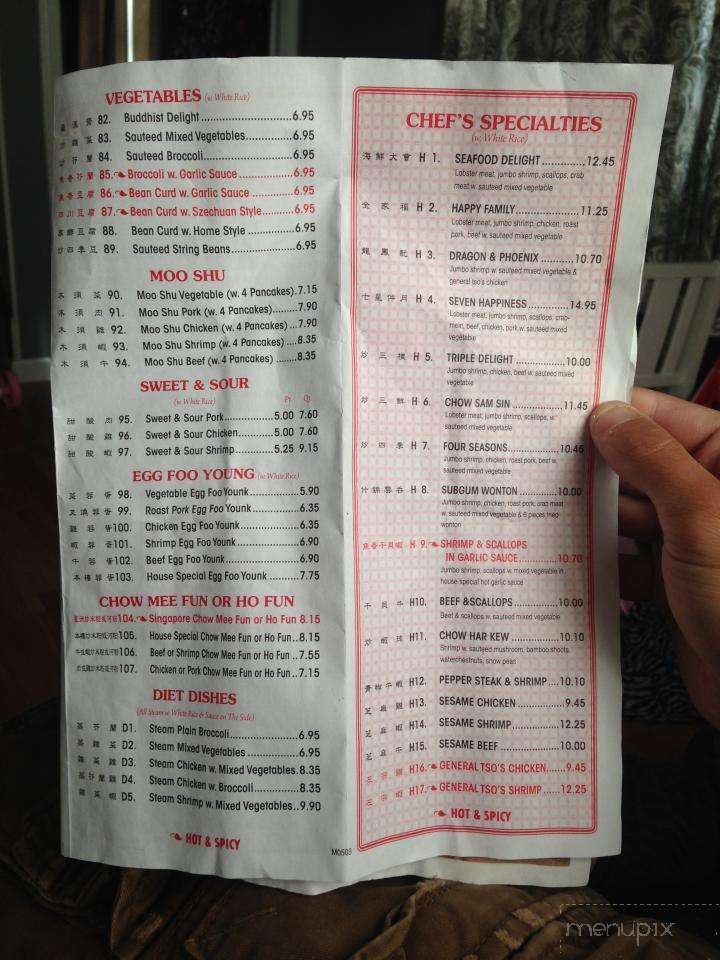 VEGETABLES (w. White Rice)
羅漢齋 82. Buddhist Delight 6.95
炒雜菜 83. Sauteed Mixed Vegetables 6.95
炒芥蘭 84. Sauteed Broccoli 6.95
魚香芥蘭 85. Broccoli w. Garlic Sauce 6.95
魚香豆腐 86. Bean Curd w. Garlic Sauce 6.95
四川豆腐 87. Bean Curd w. Szechuan Style 6.95
家鄉豆腐 88. Bean Curd w. Home Style 6.95
炒四季豆 89. Sauteed String Beans 6.95
MOO SHU
木須菜 90. Moo Shu Vegetable (w. 4 Pancakes) 7.15
木須肉 91. Moo Shu Pork (w. 4 Pancakes) 7.90
木須雞 92. Moo Shu Chicken (w. 4 Pancakes) 7.90
木須蝦 93. Moo Shu Shrimp (w. 4 Pancakes) 8.35
木須牛 94. Moo Shu Beef (w. 4 Pancakes) 8.35
SWEET & SOUR
(w. White Rice) Pt Qt
甜酸肉 95. Sweet & Sour Pork 5.00 7.60
甜酸雞 96. Sweet & Sour Chicken 5.00 7.60
甜酸蝦 97. Sweet & Sour Shrimp 5.25 9.15
EGG FOO YOUNG (w. White Rice)
菜蓉蛋 98. Vegetable Egg Foo Younk 5.90
叉燒蓉蛋 99. Roast Pork Egg Foo Younk 6.35
雞蓉蛋 100. Chicken Egg Foo Younk 6.35
蝦蓉蛋 101. Shrimp Egg Foo Younk 6.90
牛蓉蛋 102. Beef Egg Foo Younk 6.90
本樓蓉蛋 103. House Special Egg Foo Younk 7.75
CHOW MEE FUN OR HO FUN
104. Singapore Chow Mee Fun or Ho Fun 8.15
105. House Special Chow Mee Fun or Ho Fun 8.15
106. Beef or Shrimp Chow Mee Fun or Ho Fun 7.55
107. Chicken or Pork Chow Mee Fun or Ho Fun 7.15
DIET DISHES
(All Steam w. White Rice & Sauce on The Side)
蒸芥蘭 D1. Steam Plain Broccoli 6.95
蒸雜菜 D2. Steam Mixed Vegetables 6.95
雜菜雞 D3. Steam Chicken w. Mixed Vegetables 8.35
蒸芥蘭雞 D4. Steam Chicken w. Broccoli 8.35
雜菜蝦 D5. Steam Shrimp w. Mixed Vegetables 9.90
HOT & SPICY
M0503
CHEF'S SPECIALTIES
(w. White Rice)
海鮮大會 H 1. SEAFOOD DELIGHT 12.45
Lobster meat, jumbo shrimp, scallops, crab
meat w. sauteed mixed vegetable
全家福 H 2. HAPPY FAMILY 11.25
Lobster meat, jumbo shrimp, chicken, roast
pork, beef w. sauteed mixed vegetable
龍鳳配 H 3. DRAGON & PHOENIX 10.70
Jumbo shrimp w. sauteed mixed vegetable &
general tso's chicken
七星伴月 H 4. SEVEN HAPPINESS 14.95
Lobster meat, jumbo shrimp, scallops, crab-
mein, beef, chicken, pork w. sauteed mixed
vegetable
炒三樣 H 5. TRIPLE DELIGHT 10.00
Jumbo shrimp, chicken, beef w. sauteed mixed
vegetable
炒三鮮 H 6. CHOW SAM SIN 11.45
Lobster meat, jumbo shrimp, scallops, w.
sauteed mixed vegetable
炒四季 H 7. FOUR SEASONS 10.45
Jumbo shrimp, chicken, roast pork, beef w.
sauteed mixed vegetable
什錦雲吞 H 8. SUBGUM WONTON 10.00
Jumbo shrimp, chicken, roast pork, crab meat
w. sauteed mixed vegetable & 6 pieces fried
wonton
魚香干貝蝦 H 9. SHRIMP & SCALLOPS
IN GARLIC SAUCE 10.70
Jumbo shrimp, scallops w. mixed vegetable in
house special hot garlic sauce
干貝牛 H10. BEEF &SCALLOPS 10.00
Beef & scallops w. sauteed mixed vegetable
炒蝦球 H11. CHOW HAR KEW 10.10
Shrimp w. sauteed mushroom, bamboo shoots,
waterchestnuts, snow peas
青椒牛蝦 H12. PEPPER STEAK & SHRIMP 10.10
芝麻雞 H13. SESAME CHICKEN 9.45
芝麻蝦 H14. SESAME SHRIMP 12.25
芝麻牛 H15. SESAME BEEF 10.00
左宗雞 H16. GENERAL TSO'S CHICKEN 9.45
左宗蝦 H17. GENERAL TSO'S SHRIMP 12.25
HOT & SPICY
menupix